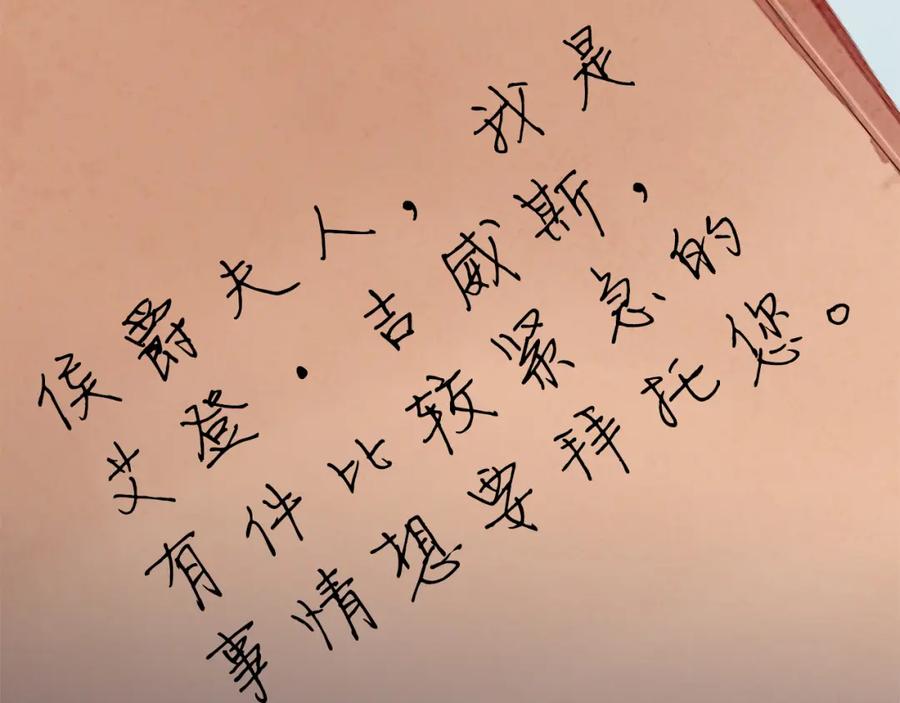 侯爵夫人，我是
艾登·吉威斯，
有件比较紧急的
事情想要拜托您。